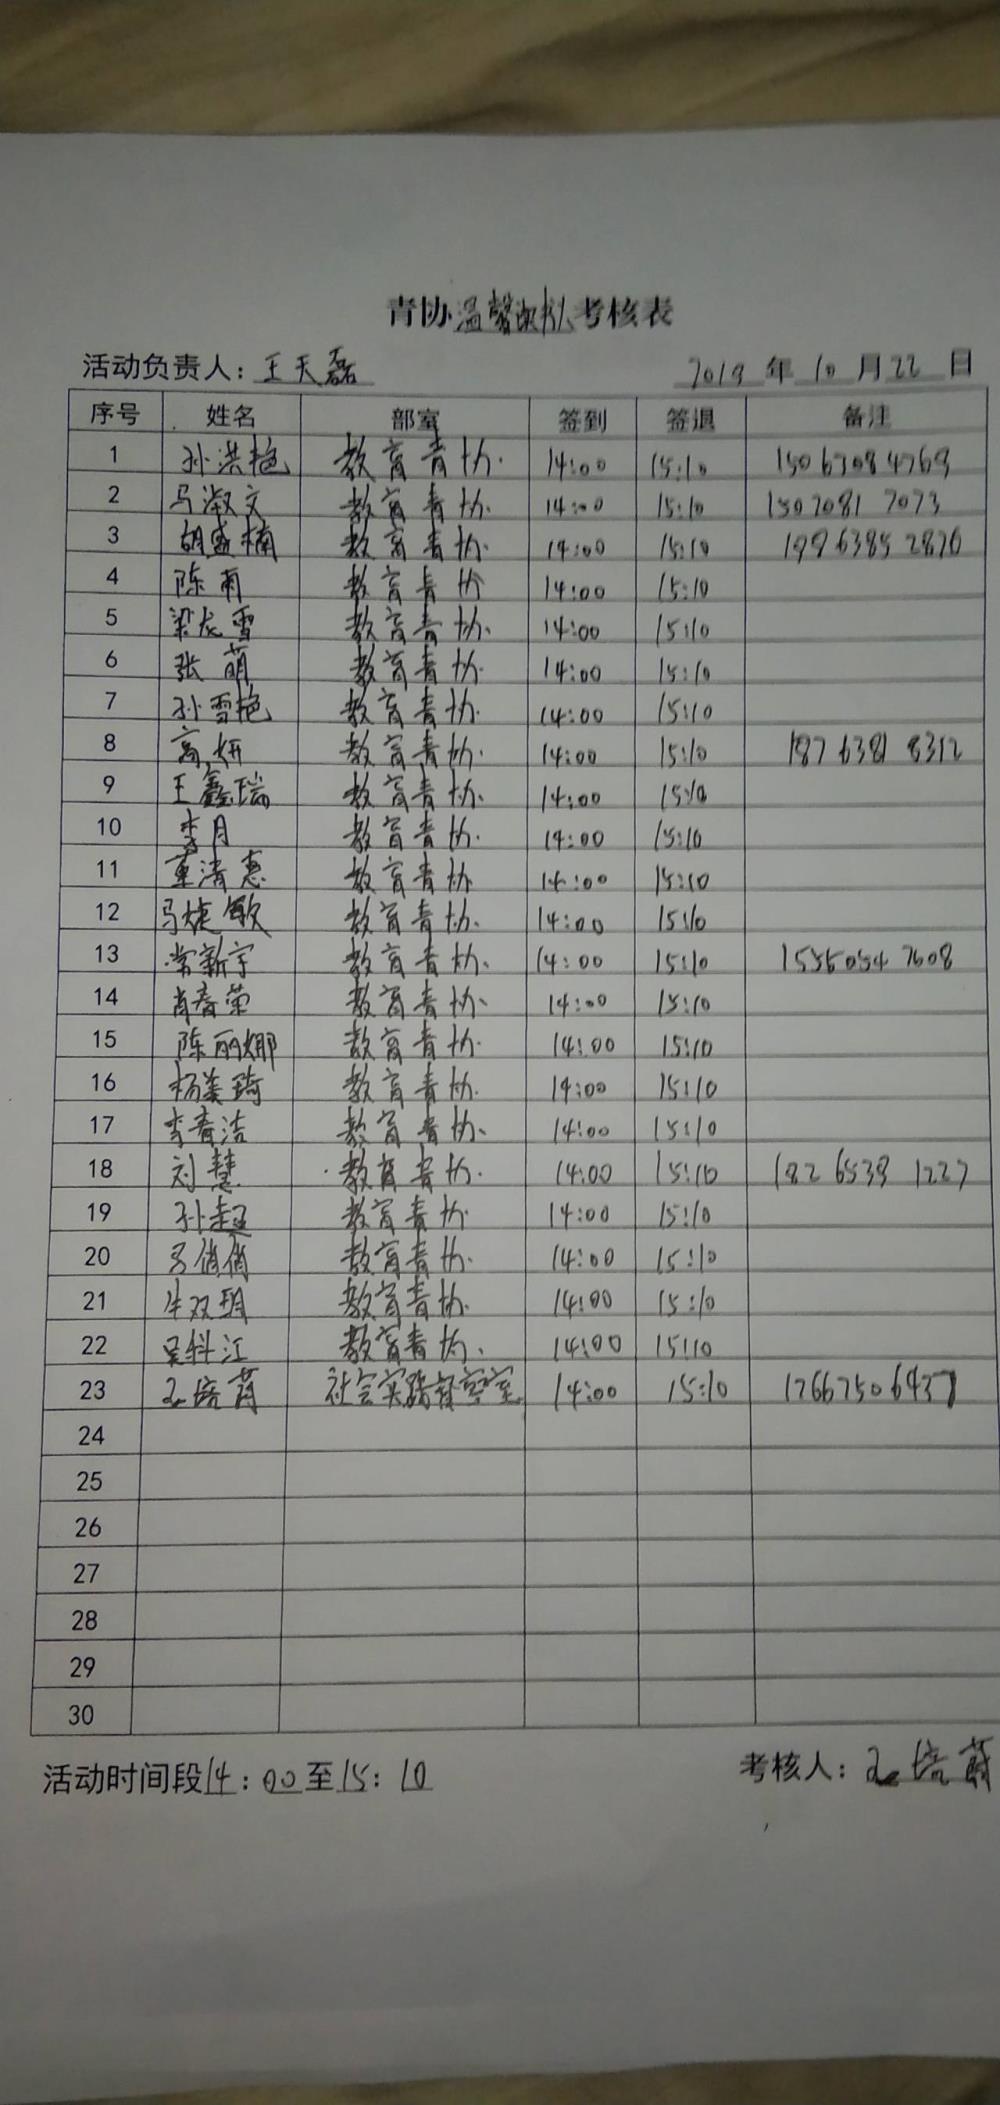 青协温馨课堂考核表
活动负责人：王天磊 2019年10月22日
序号 姓名 部室 签到 签退 备注
1 孙洪艳 教育青协 14:00 15:10 15063084769
2 马淑文 教育青协 14:00 15:10 1507081 7073
3 胡盛楠 教育青协 14:00 15:10
4 陈雨 教育青协 14:00 15:10
5 梁龙雪 教育青协 14:00 15:10
6 张萌 教育青协 14:00 15:10
7 孙雪艳 教育青协 14:00 15:10
8 高妍 教育青协 14:00 15:10 187 6381 8312
9 王鑫瑞 教育青协 14:00 15:10
10 李月 教育青协 14:00 15:10
11 董清惠 教育青协 14:00 15:10
12 马婕敏 教育青协 14:00 15:10
13 常新宇 教育青协 14:00 15:10
14 肖春荣 教育青协 14:00 15:10
15 陈丽娜 教育青协 14:00 15:10
16 杨美琦 教育青协 14:00 15:10
17 李春洁 教育青协 14:00 15:10
18 刘慧 教育青协 14:00 15:10 182 6539 1227
19 孙超 教育青协 14:00 15:10
20 马俏俏 教育青协 14:00 15:10
21 牛双玥 教育青协 14:00 15:10
22 吴科江 教育青协 14:00 15:10
23 王培茜 社会实践督察室 14:00 15:10 17667506437
24
25
26
27
28
29
30
活动时间段14：00至15：10 考核人：王培茜